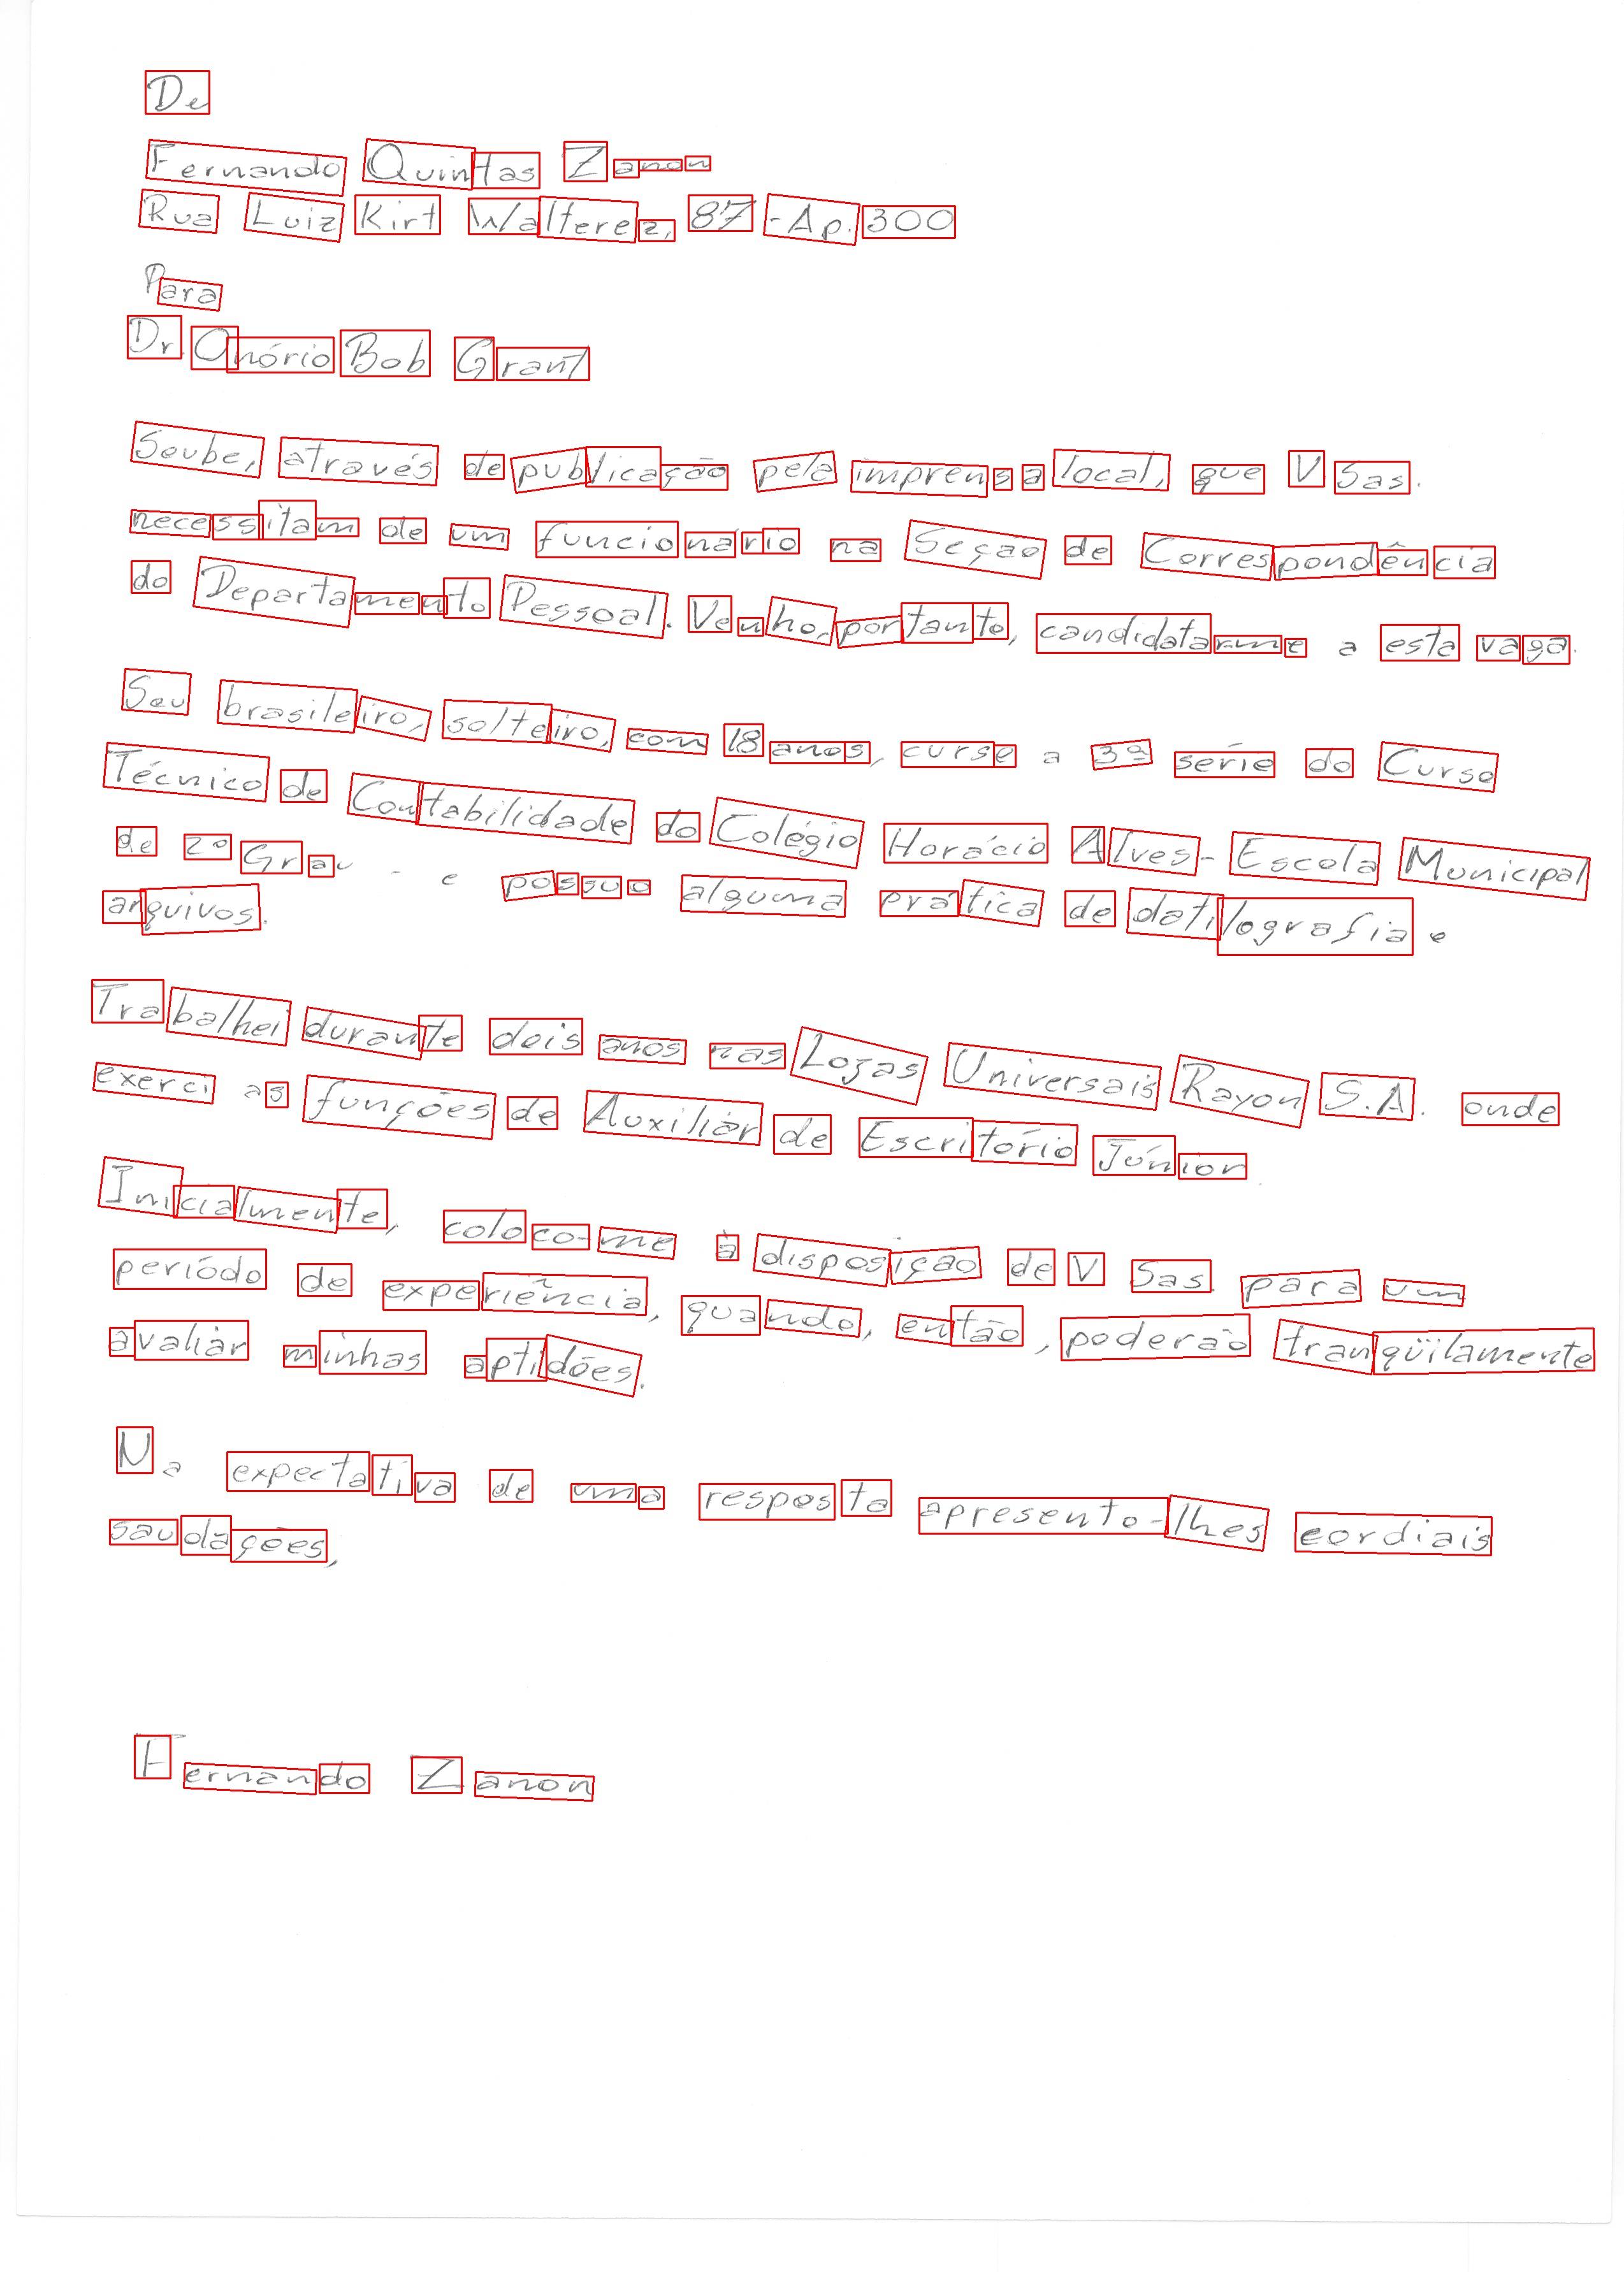 De
Fernando Quintas Zanon
Rua Luiz Kirt Walterez, 87 - Ap. 300
Para
Dr. Onório Bob Grant
Soube, através de publicação pela imprensa local, que V Sas.
necessitam de um funcionário na Seção de Correspondência
do Departamento Pessoal. Venho, portanto, candidatarme a esta vaga.
Sou brasileiro, solteiro, com 18 anos, curso a 3ª série do Curso
Técnico de Contabilidade do Colégio Horácio Alves - Escola Municipal
de 2º Grau - e possuo alguma prática de datilografia e
arquivos.
Trabalhei durante dois anos nas Lojas Universais Rayon S.A. onde
exerci as funções de Auxiliar de Escritório Júnior.
Inicialmente, coloco-me à disposição de V Sas. para um
período de experiência, quando, então, poderão tranqüilamente
avaliar minhas aptidões.
Na expectativa de uma resposta apresento-lhes cordiais
saudações,
Fernando Zanon